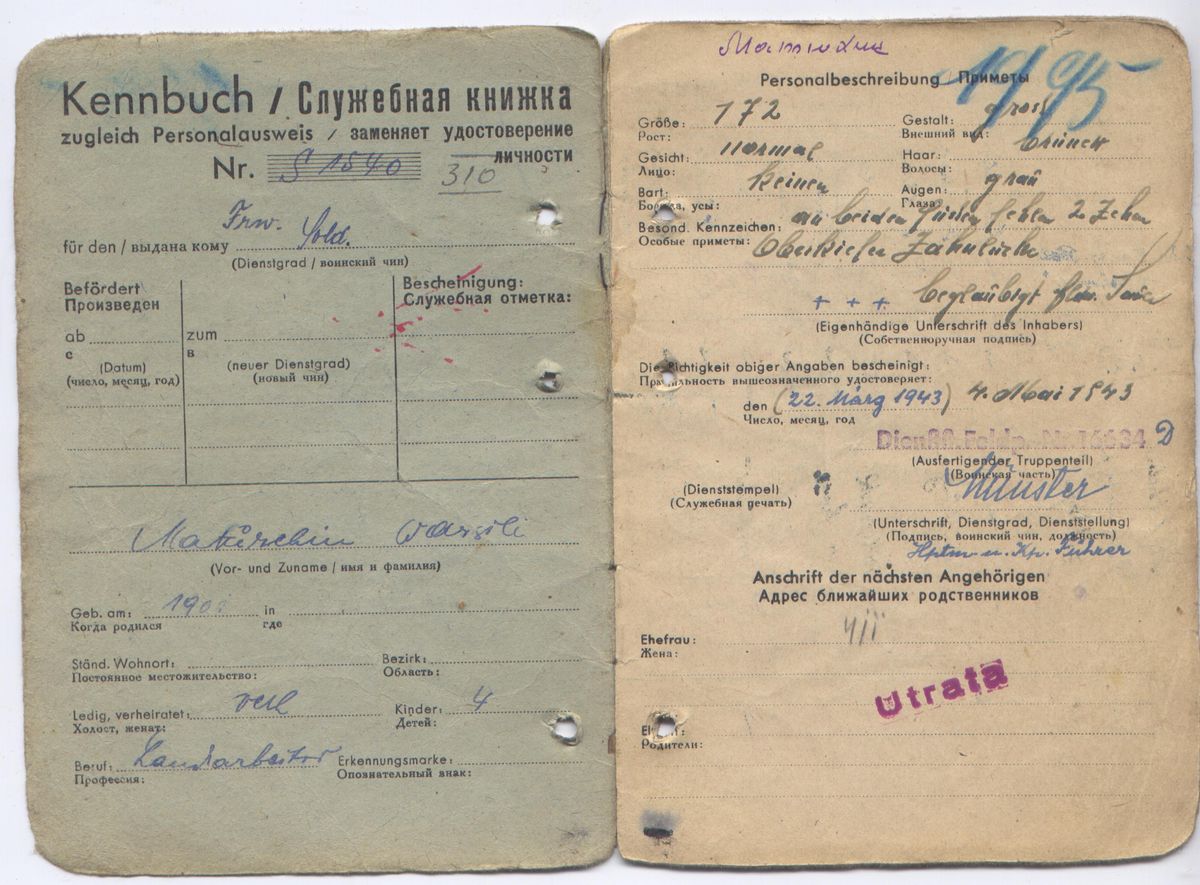 Kennbuch / Служебная книжка
zugleich Personalausweis / заменяет удостоверение
личности
Nr. S 1540 310
Frw. Sold.
für den / выдана кому
(Dienstgrad / воинский чин)
Befördert
Произведен
Bescheinigung:
Служебная отметка:
ab zum
с в
(Datum) (neuer Dienstgrad)
(число, месяц, год) (новый чин)
Wassili
(Vor- und Zuname / имя и фамилия)
Geb. am: in
Когда родился где
Ständ. Wohnort: Bezirk:
Постоянное местожительство: Область:
Ledig, verheiratet: verh Kinder: 4
Холост, женат: Детей:
Beruf: Landarbeiter Erkennungsmarke:
Профессия: Опознательный знак:
Personalbeschreibung / Приметы
Größe: 172 Gestalt: groß
Рост: Внешний вид:
Gesicht: normal Haar: brünett
Лицо: Волосы:
Bart: keinen Augen: grau
Борода, усы: Глаза:
Besond. Kennzeichen: an beiden Füßen fehlen 2 Zehen
Особые приметы: Oberkiefer Zahnlücke
+ + + beglaubigt
(Eigenhändige Unterschrift des Inhabers)
(Собственноручная подпись)
Die Richtigkeit obiger Angaben bescheinigt:
Правильность вышеозначенного удостоверяет:
den (22. März 1943) 4. Mai 1943
Число, месяц, год
D
(Ausfertigender Truppenteil)
(Воинская часть)
(Dienststempel) Münster
(Служебная печать)
(Unterschrift, Dienstgrad, Dienststellung)
(Подпись, воинский чин, должность)
Hptm. u. Kp. Führer
Anschrift der nächsten Angehörigen
Адрес ближайших родственников
Ehefrau:
Жена:
Utrata
Eltern:
Родители: